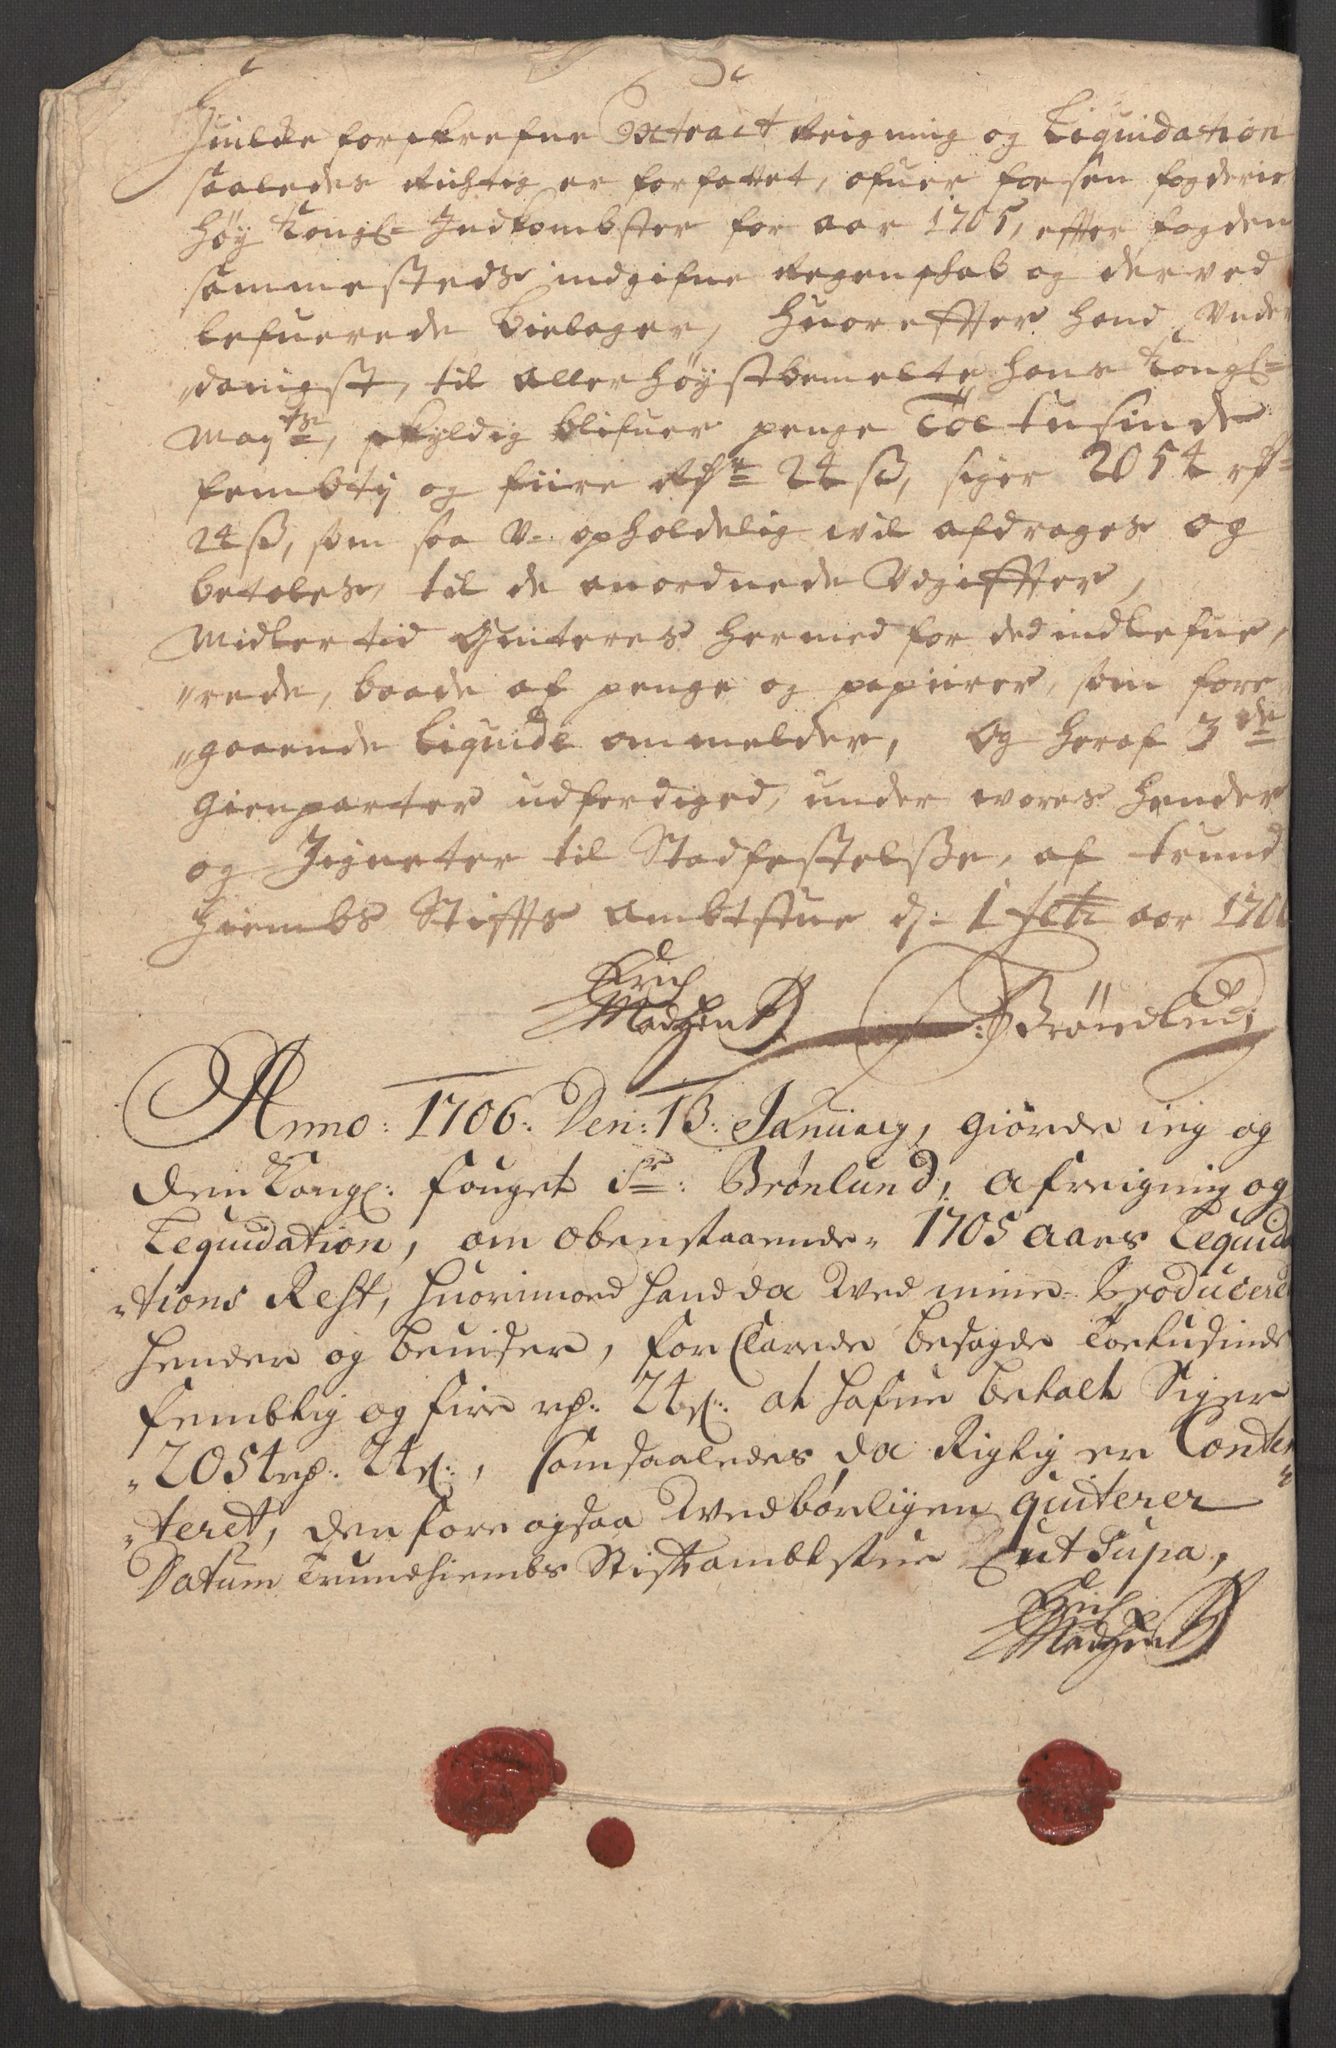 Huilke forskrefne Extract Reigning og Liquidation
saaledes Richtig er forfattet, ofuer fosen fogderie
høy Kongl= Indkombster for aar 1705, efter fogden
sammesteds indgifne Regenskab og derved
lefuerede bielager, Huorefter hand Under
danigst, til allerhøystbemelte hans Kongl=
Mayts, skyldig blifuer penge Toe tusinde
fembty og fiire Rdr 24 ß, siger 2054 rd=
24 ß, som saa U-opholdelig vil afdrages og
betales, til de anordnede Udgiffter,
Midlertid Quiteres hermed for ded indlefue,
"rede, baade af penge og papiirer, som fore
"gaaende Liquide ommelder, Og heraf 3de
Gienparter udferdiged, under vores Hender
og Signeter til Stadfestelsse, af Trund
hiembs Stiffts ambtstue d: 1 feb: aar 1706
Erich
Madhsen
Brøndlund
Anno: 1706: Den: 13: January, giorde ieg og
dem Kongl: fouget Sr: Brønlund, afreigning og
Lequidation, om obenstaaende 1705 aars Lequida
"tions Rest, huorimoed hand da wed mine Producerede
hender og beuiser, forclarede besagde Toetusinde
fembtig og fire rd: 24 ß: at hafue betalt Siger
"2054 rd: 24 ß:, somsaaledes da Rigtig er Conten
"teret, den fore ogsaa wedbørligen quiterer
Datum Trundhiembs Stiftambtstue ut Supa,
Erich
Madhsen